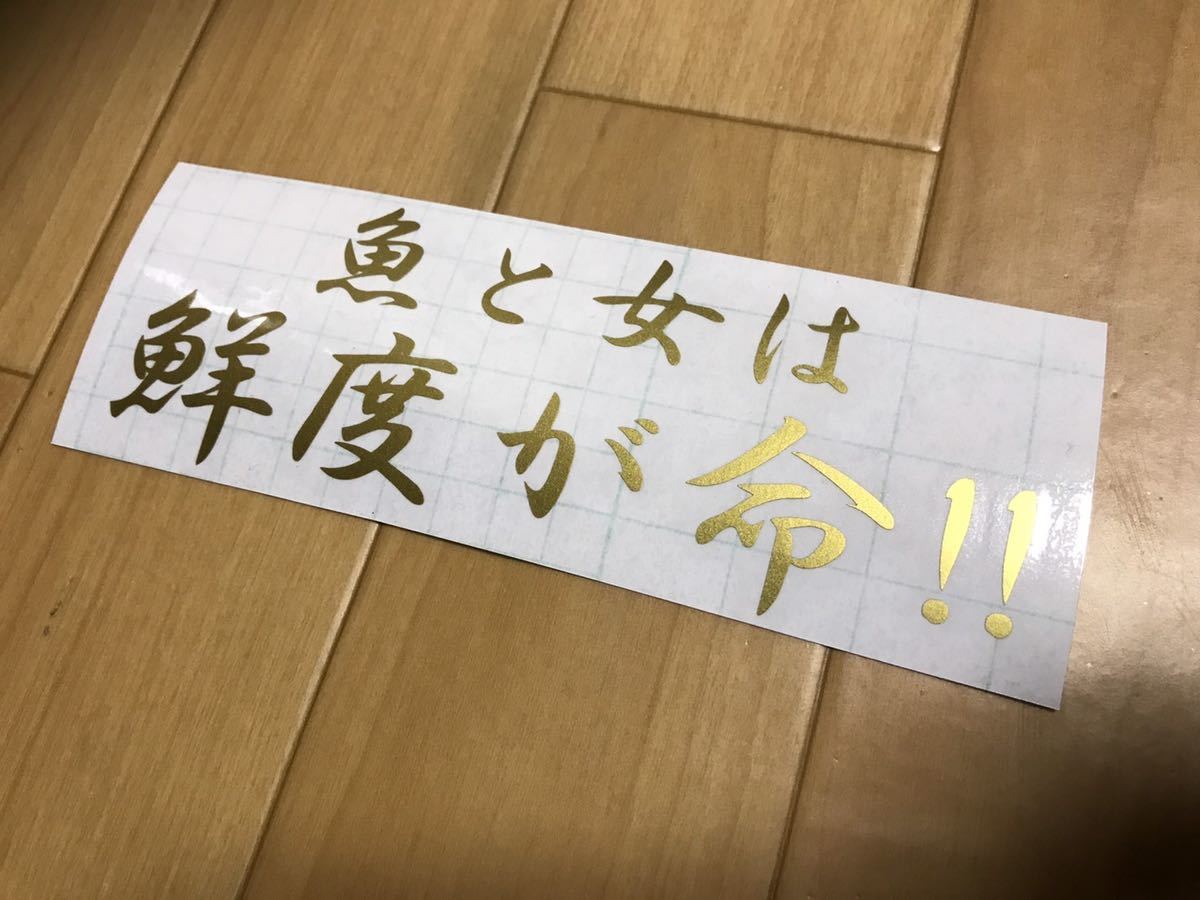 魚と女は
鮮度が命!!